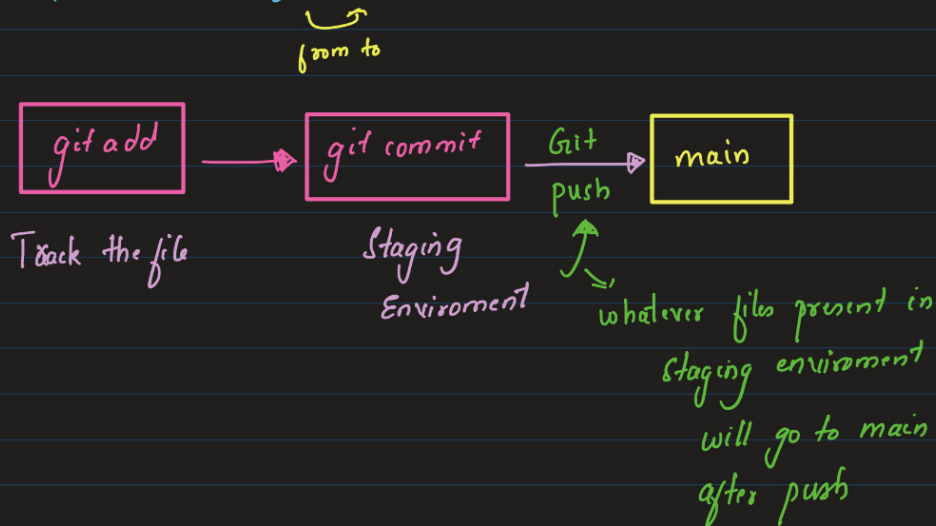 from to
git add
git commit
Git
push
main
Track the file
Staging
Enviroment
whatever files present in
staging enviroment
will go to main
after push